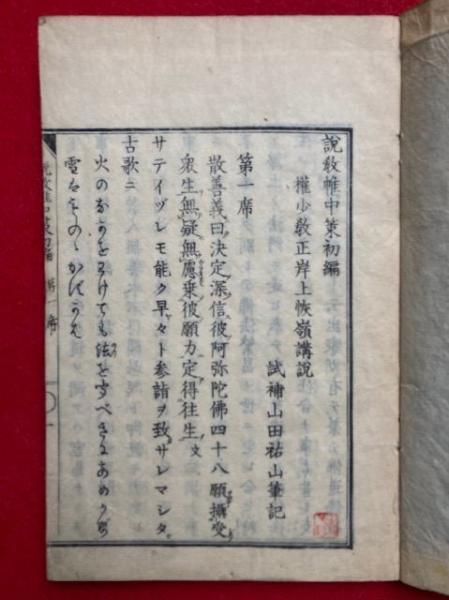 説教帷中策初編
権少教正岸上恢嶺講説
試補山田祐山筆記
第一席
散善義曰決定深信彼阿弥陀佛四十八願攝受
衆生無疑無慮乗彼願力定得往生文
サテイヅレモ能ク早々ト参詣ヲ致サレマシタ。
古歌ニ
火の をも けても法を すべき あめ
雪
説教帷中策初編 第一席